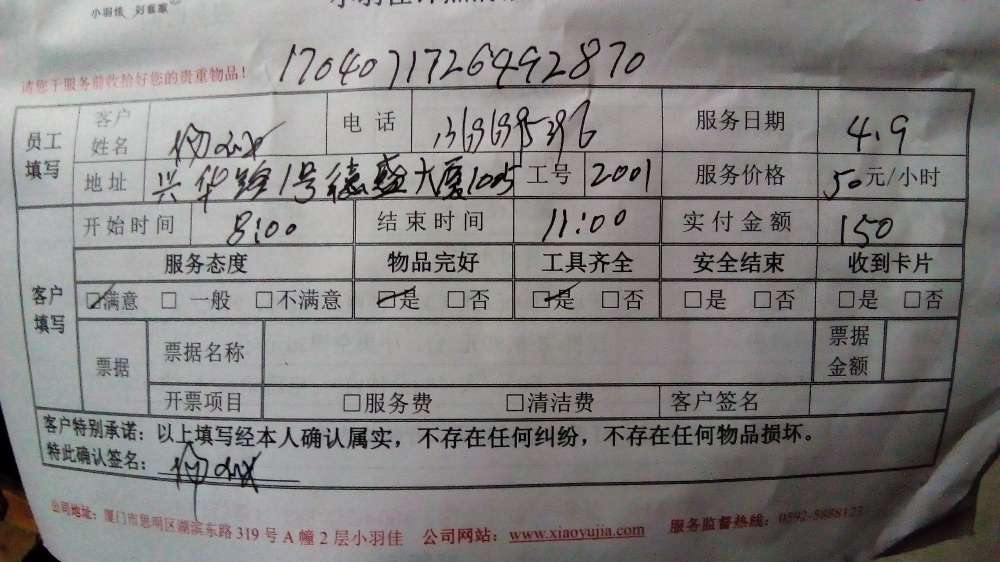 小羽佳 到喜家
请您于服务前收拾好您的贵重物品！ 1704071726492870
员工填写 客户姓名 电话 服务日期 4.9
地址 兴华路1号德盛大厦1005 工号 2001 服务价格 50元/小时
客户填写 开始时间 8:00 结束时间 11:00 实付金额 150
服务态度 物品完好 工具齐全 安全结束 收到卡片
☑满意 □ 一般 □不满意 ☑是 □否 ☑是 □否 □是 □否 □是 □否
票据 票据名称 票据金额
开票项目 □服务费 □清洁费 客户签名
客户特别承诺：以上填写经本人确认属实，不存在任何纠纷，不存在任何物品损坏。
特此确认签名：
公司地址：厦门市思明区湖滨东路319号A幢2层小羽佳 公司网站：www.xiaoyujia.com 服务监督热线：0592-5888123